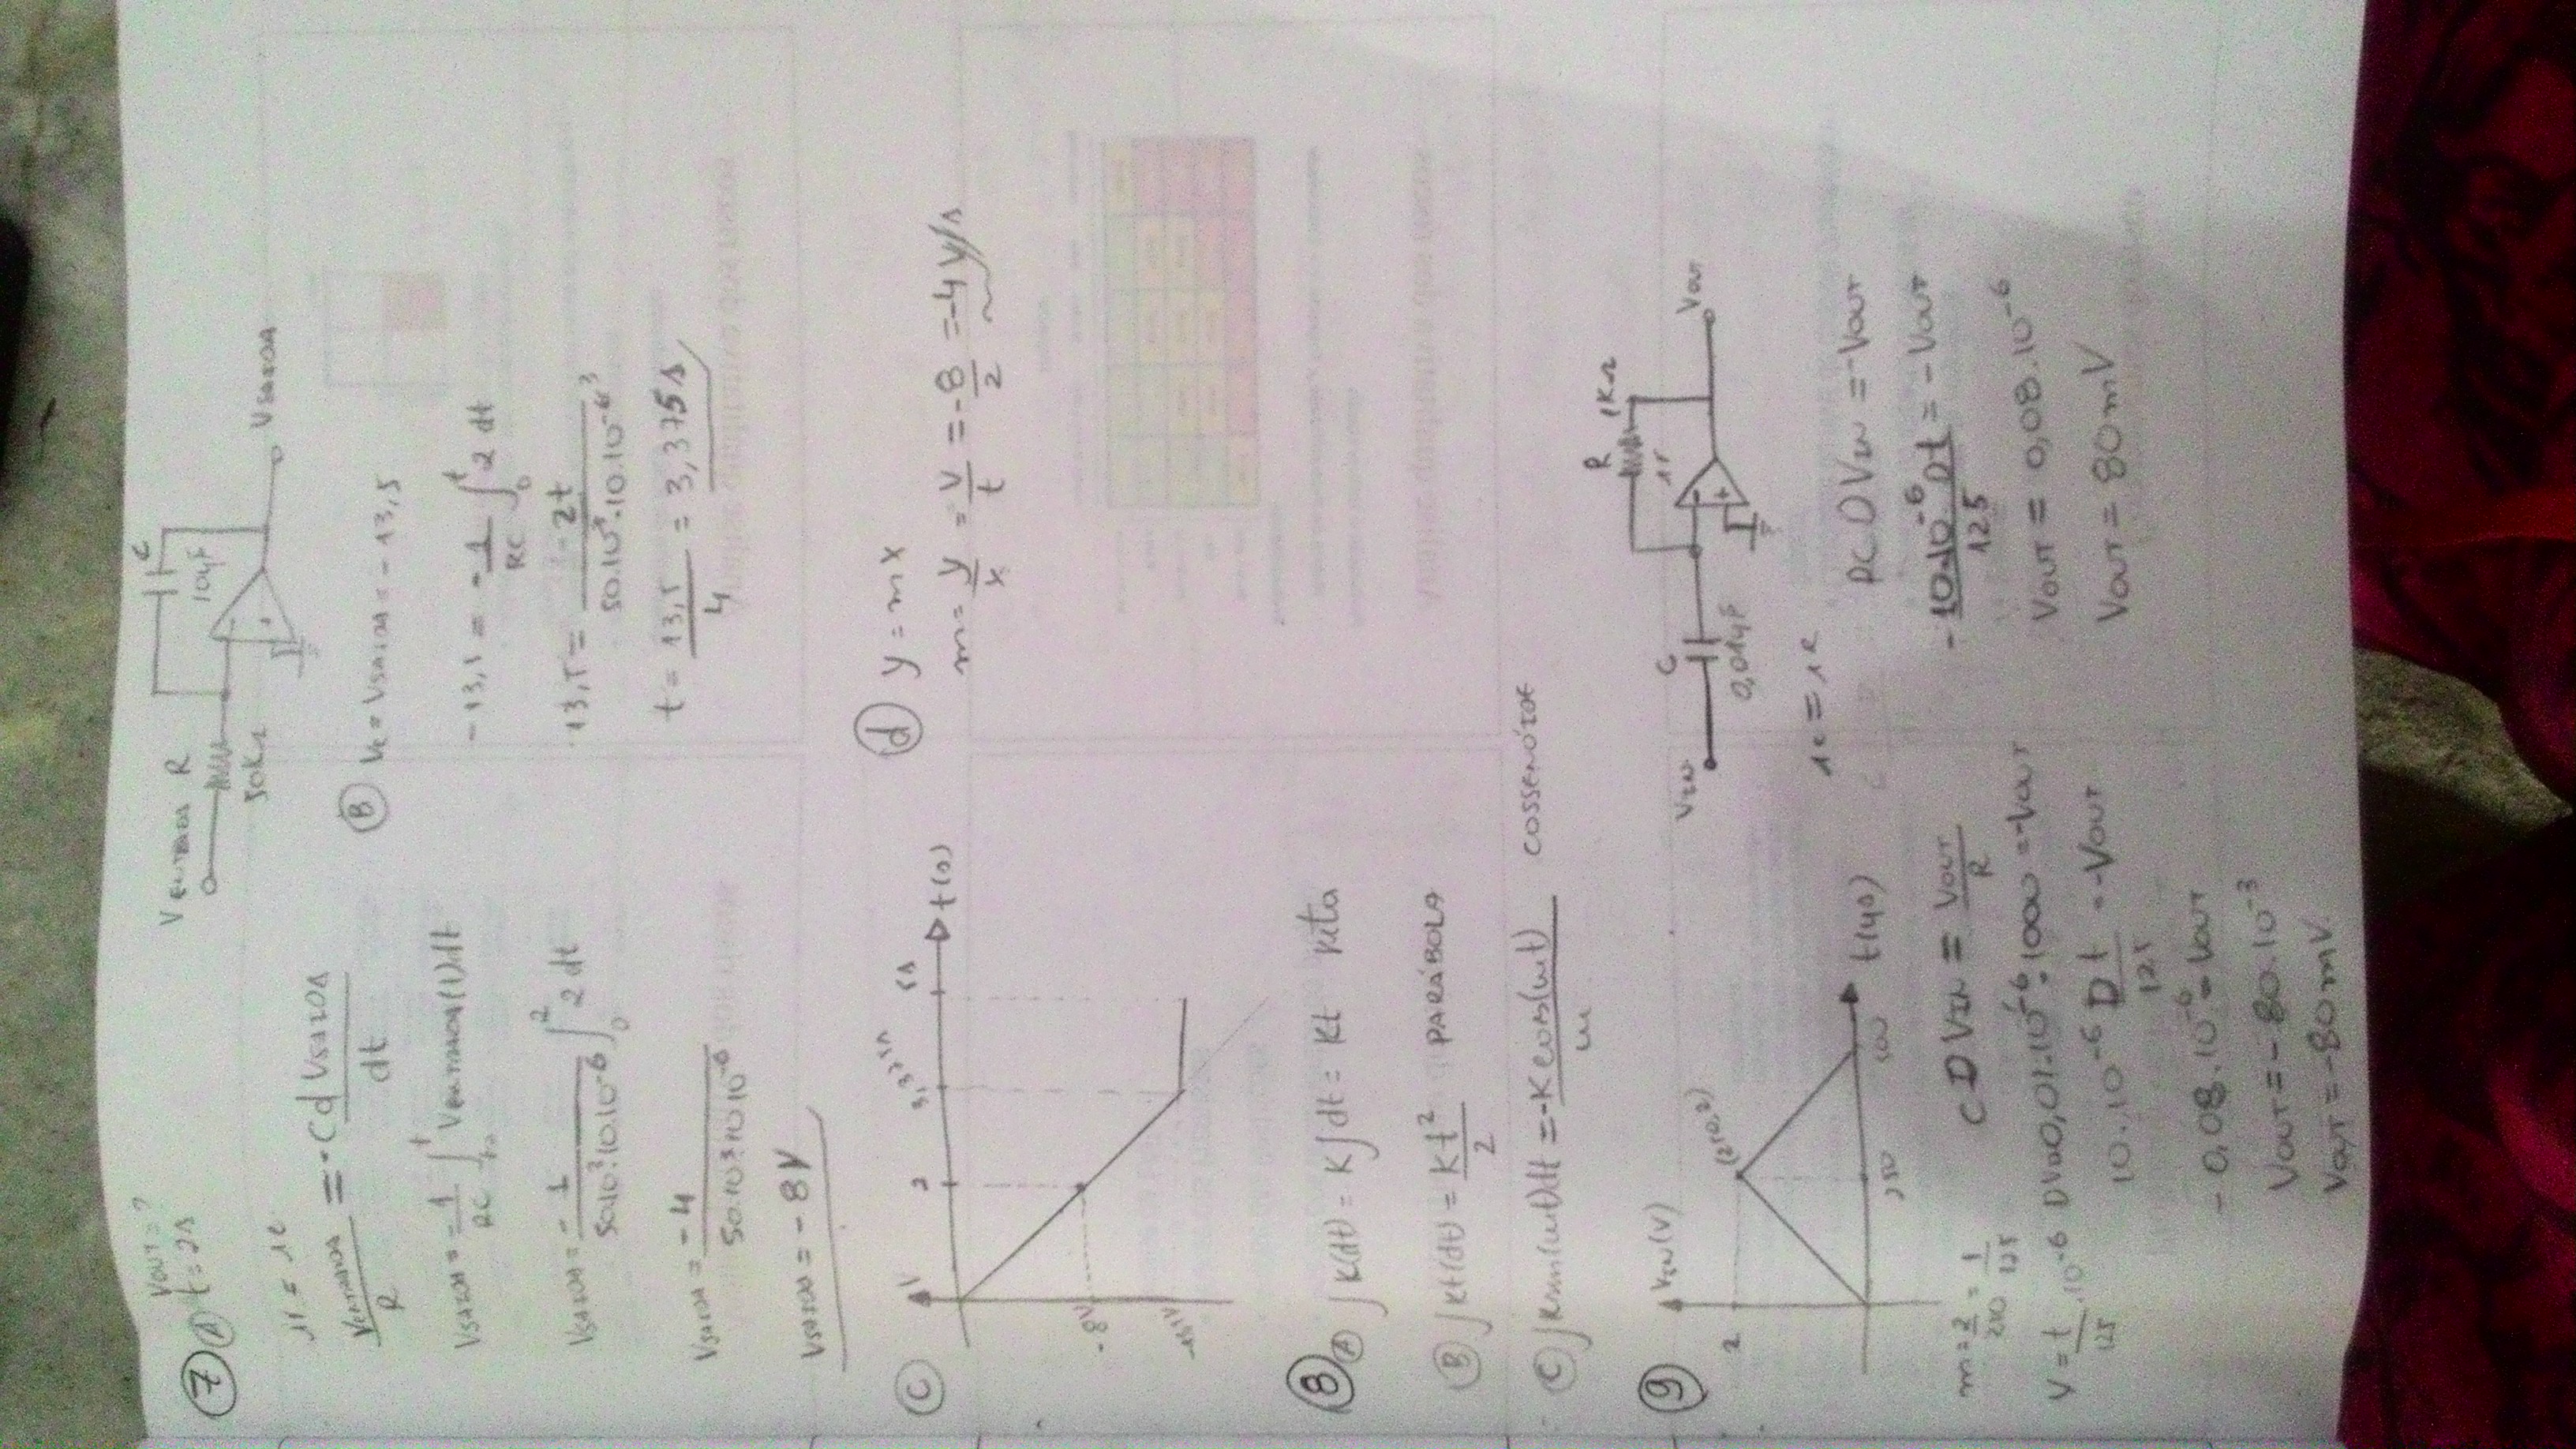 VOUT = ?
7 A t = 2s
VENTRADA R
50KΩ
C
10μF
VSAIDA
VENTRADA/R = -C d VSAIDA/dt
VSAIDA = -1/RC ∫ VENTRADA(t) dt
VSAIDA = -1/50.10³.10.10⁻⁶ ∫₀² 2 dt
VSAIDA = -4/50.10³.10.10⁻⁶
VSAIDA = -8V
B Vc = VSAIDA = -13,5
-13,5 = -1/RC ∫₀ᵗ 2 dt
13,5 = 2t/50.10³.10.10⁻⁶
t = 13,5/4 = 3,375s
C V
2 3,375s 5s t(s)
-8V
-13,5V
d y = mx
m = y/x = V/t = -8/2 = -4V/s
8 A ∫K(dt) = K∫dt = Kt reta
B ∫Kt(dt) = Kt²/2 PARÁBOLA
C ∫Ksen(wt)dt = -Kcos(wt)/w COSSENÓIDE
9 VIN(V)
2
(250,2)
250 500 t(μs)
VIN C
0,01μF
R 1KΩ
VOUT
m = 2/250 = 1/125
V = t/125 .10⁻⁶
C D VIN = VOUT/R
DV 0,01.10⁻⁶.1000 = -VOUT
10.10⁻⁶ D t/125 = -VOUT
-0,08.10⁻⁶ = VOUT
VOUT = -80.10⁻³
VOUT = -80mV
ic = iR
RC D VIN = -VOUT
-10.10⁻⁶ Dt/125 = -VOUT
VOUT = 0,08.10⁻⁶
VOUT = 80mV